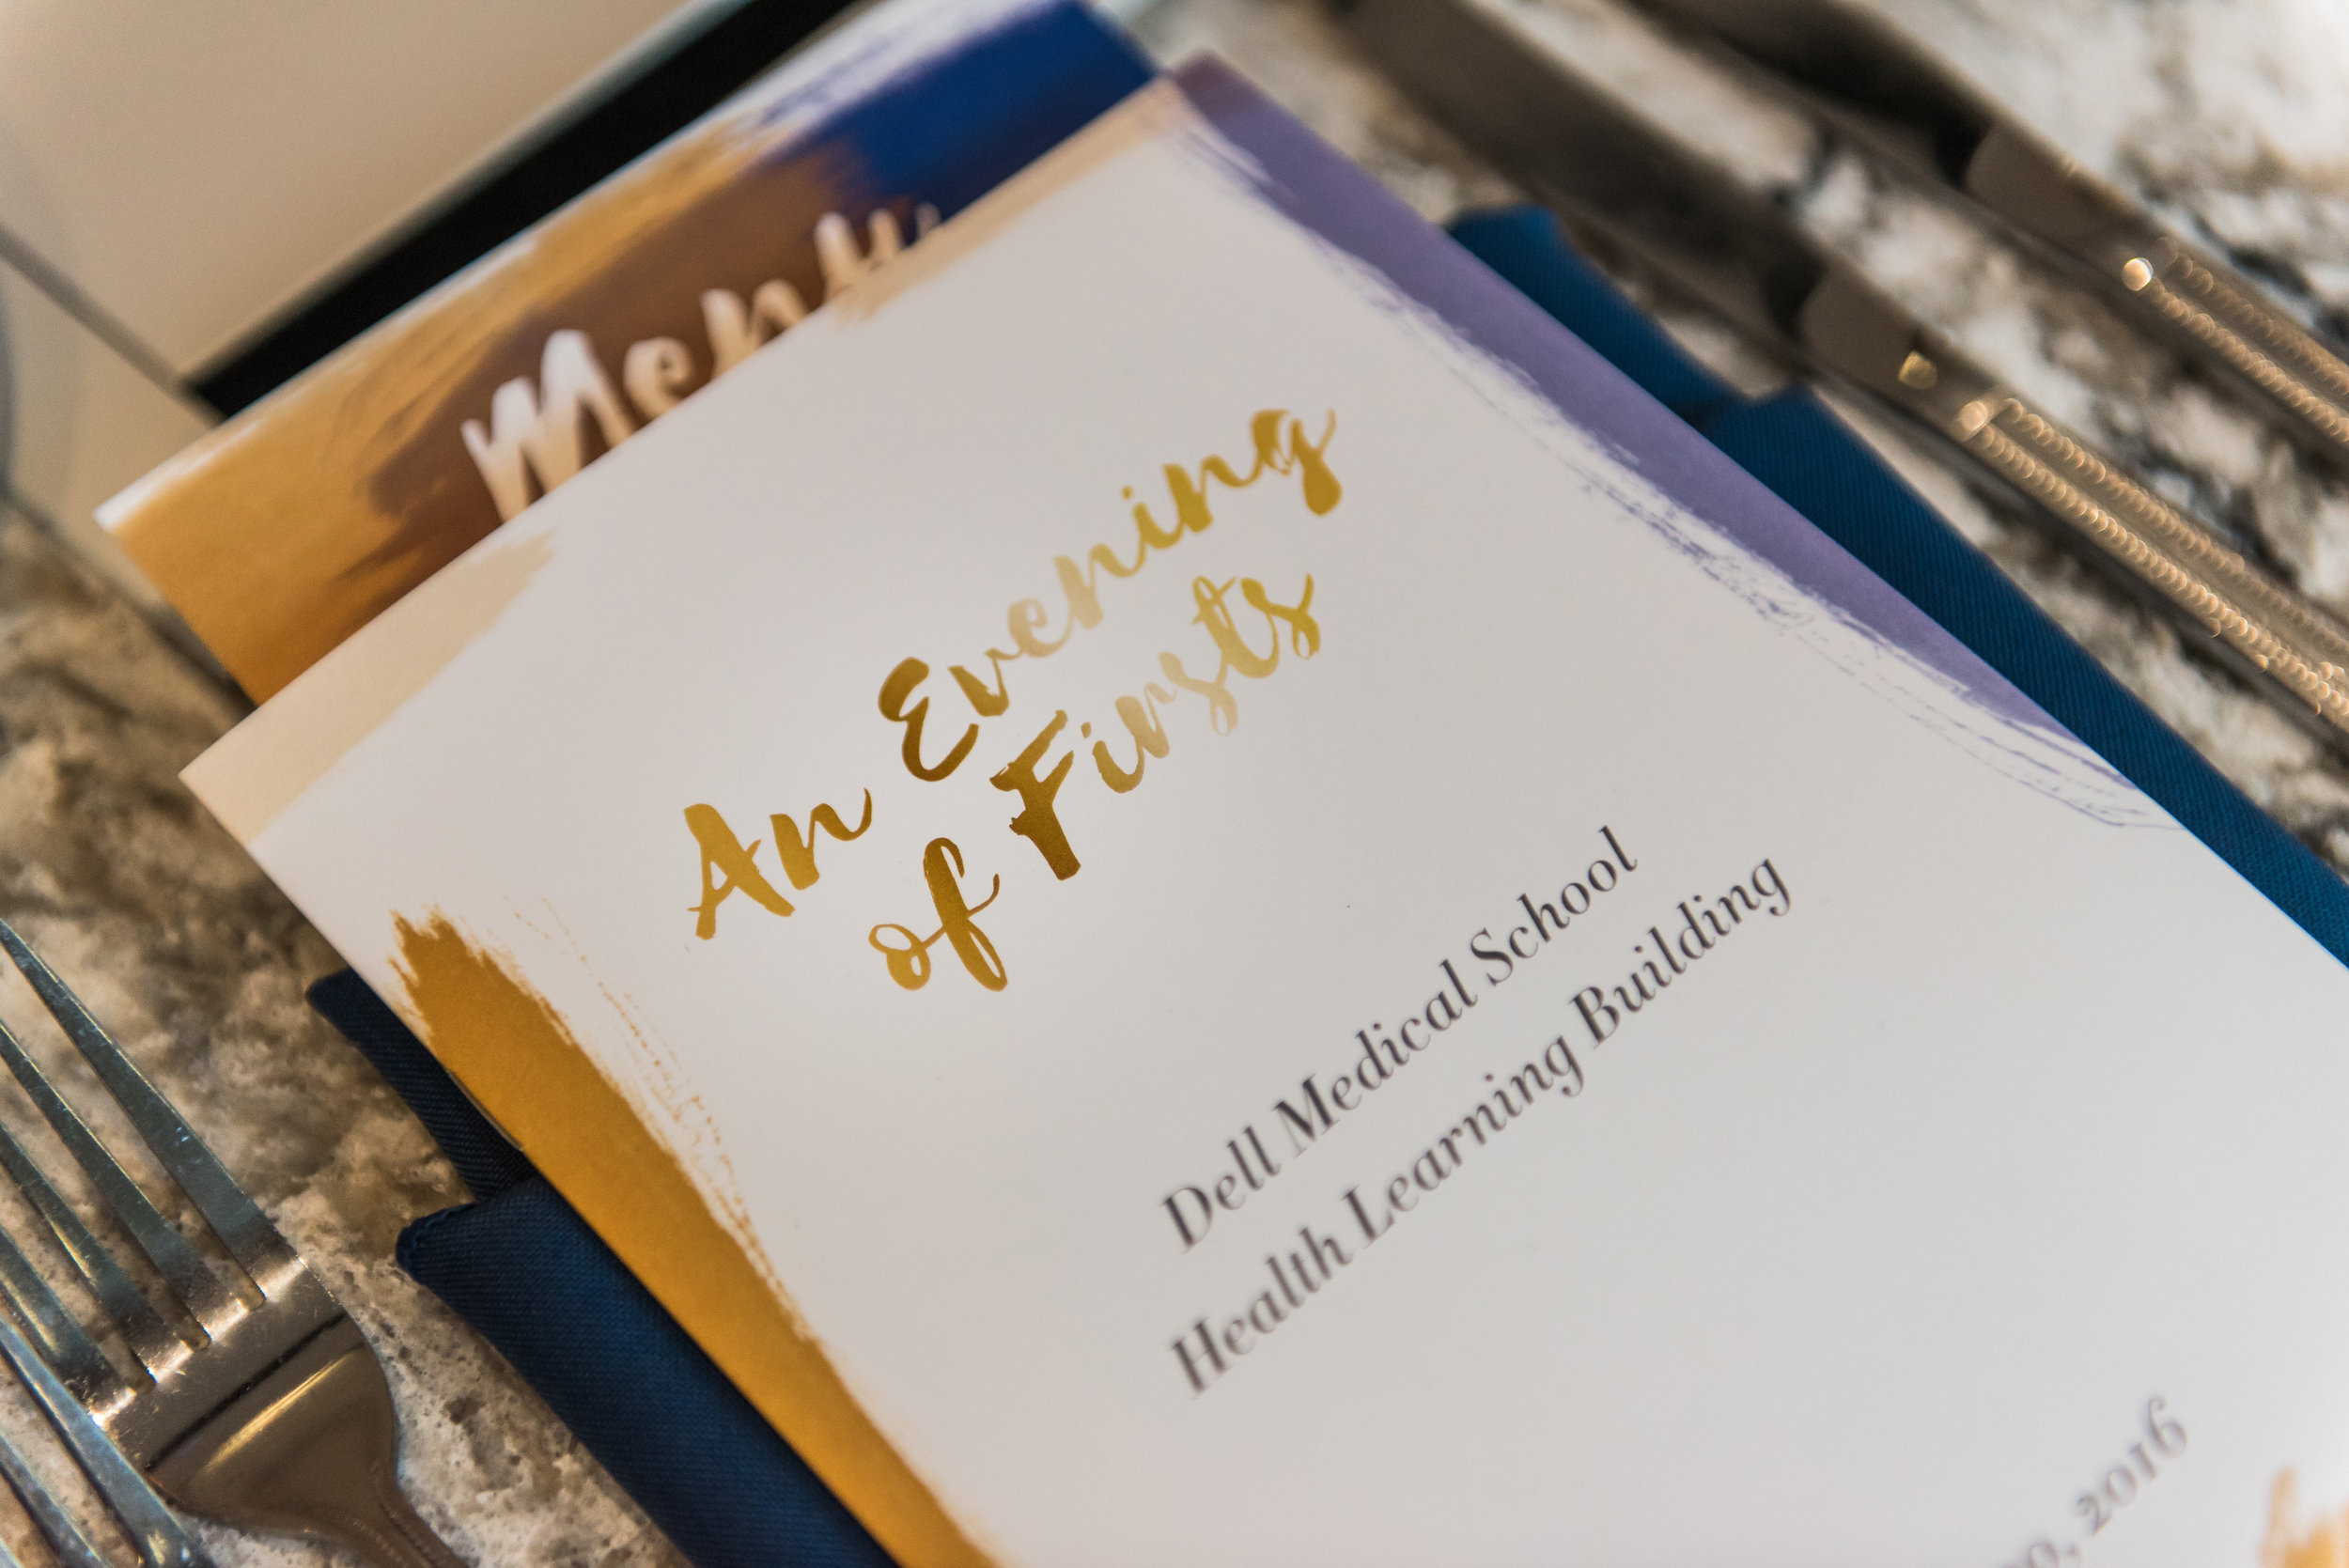 Menu
An Evening
of Firsts
Dell Medical School
Health Learning Building
0, 2016